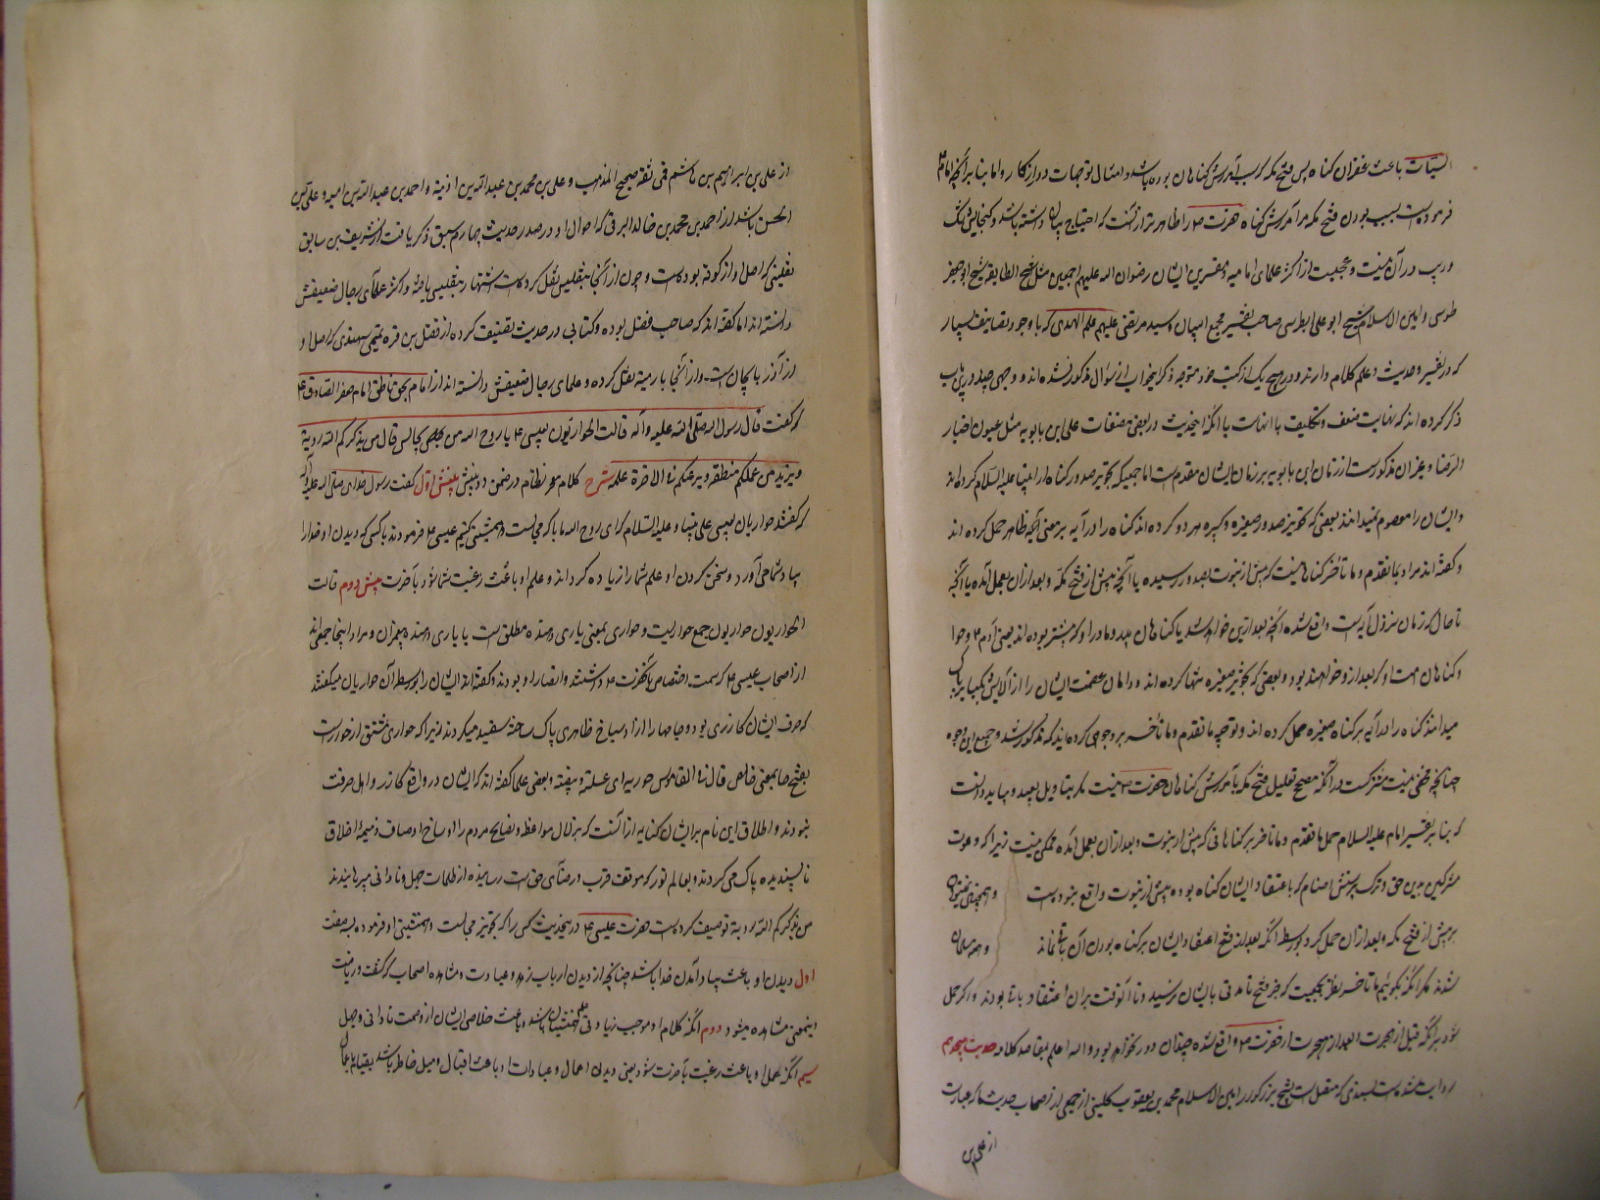 السیئات باعث غفران کناه پس فتح مکه که سبب آمرزش کناهان بوده باشد و امثال توجیهات دور از کار و اما بنا بر آنچه امام ع
فرموده است سبب بودن فتح مکه مر آمرزش کناه حضرت را ظاهرتر از آنست که احتیاج ببیان داشته باشد و کنجایش شک
و ریب در آن نیست و عجبست از اکثر علمای امامیه و مفسرین ایشان رضوان الله علیهم اجمعین مثل شیخ الطایفه شیخ ابو جعفر
طوسی و امین الاسلام شیخ ابو علی طبرسی صاحب تفسیر مجمع البیان و سید مرتضی علم الهدی که با وجود تصانیف بسیار
که در تفسیر و حدیث و علم کلام دارند و در هیچ یک از کتب خود متوجه ذکر این جواب از سؤال مذکور نشده اند و وجهی چند درین باب
ذکر کرده اند که نهایت ضعف و تکلیف با انهاست با آنکه این حدیث در بعضی مصنفات علی بن بابویه مثل عیون اخبار
الرضا و غیر آن مذکورست و زمان ابن بابویه بر زمان ایشان مقدم است اما جمعی که تجویز صدور کناه از انبیا علیه السلام کرده اند
و ایشان را معصوم نمیدانند بعضی که تجویز صدور صغیره و کبیره هر دو کرده اند کناه را در آیه بر معنی ظاهر حمل کرده اند
و کفته اند مراد بما تقدم و ما تأخر کناهانیست که پیش از نبوت و بعد رسیده یا آنچه پیش از فتح مکه و بعد از آن بعمل آمده یا آنچه
تا حال که زمان نزول آیه است واقع شده و آنچه بعد ازین خواهد شد یا کناهان پدر و مادر او که پیشتر بوده اند یعنی آدم ع و حوا
و کناهان امت او که بعد از و خواهند بود و بعضی که تجویز صغیره تنها کرده اند و دامان عصمت ایشان را از آلایش بکبایر پاک
میدانند کناه را در آیه بر کناه صغیره حمل کرده اند و توجیه ما تقدم و ما تأخر بر وجوهی کرده اند که مذکور شد و جمیع این وجوه
چنانچه مخفی نیست مشترکست در آنکه مصحح تعلیل فتح مکه بآمرزش کناهان حضرت نیست مکر بتأویل بعید و بباید دانست
که بنا بر تفسیر امام علیه السلام حمل ما تقدم و ما تأخر بر کناهانی که پیش از نبوت و بعد از آن بعمل آمده ممکن نیست زیرا که دعوت
مشرکین بدین حق و ترک پرستش اصنام که باعتقاد ایشان کناه بوده پیش از نبوت واقع نبوده است و همچنین نمیتوان
بر پیش از فتح مکه و بعد از آن حمل کرد بواسطه آنکه بعد از فتح اعتقاد ایشان بر کناه بودن آن باقی نماند و همه مسلمان
شدند مکر آنکه بکوئیم ما تأخر نظر بجمعیست که خبر فتح تا مدتی بایشان نرسید و تا آنوقت بران اعتقاد باقی بودند و اکر حمل
شود بر آنکه قبل از هجرت و بعد از هجرت از حضرت واقع شده چندان دور نخواهد بود و الله اعلم بمقاصد کلامه حدیث پنجم
روایت شده است بسندی که متصل است بشیخ بزرکوار امین الاسلام محمد بن یعقوب کلینی از جمعی از اصحاب حدیث که عبارت
از علی بن
از علی بن ابراهیم بن هاشم قمی ثقه صحیح المذهب و علی بن محمد بن عبدالله بن اذینه و احمد بن عبدالله بن امیه و علی بن
الحسن باشد از احمد بن محمد بن خالد البرقی که احوال او در صدر حدیث چهارم سبق ذکر یافت از شریف بن سابق
تفلیسی که اصل او از کوفه بوده است و چون از آنجا بتفلیس نقل کرده است اشتهار بتفلیسی یافته و اکثر علمای رجال ضعیفش
دانسته اند اما کفته اند که صاحب فضل بوده و کتابی در حدیث تصنیف کرده از فضل بن قره تمیمی سهندی که اصل او
از آذربایجان است و از آنجا بارمینه نقل کرده و علمای رجال ضعیفش دانسته اند از امام بحق ناطق امام جعفر الصادق ع
که کفت قال رسول الله صلی الله علیه و آله قالت الحواریون لعیسی ع یا روح الله من نجالس قال من یذکرکم الله رویته
و یزید فی علمکم منطقه و یرغبکم فی الاخرة علمه شرح کلام معجز نظام در ضمن دو بینش بینش اول کفت رسول خدای صلی الله علیه و آله
که کفتند حواریان بعیسی علی نبینا و علیه السلام که ای روح الله ما با که مجالست و همنشینی کنیم عیسی ع فرمودند با کسی که دیدن او خدا را
بیاد شما می آورد و سخن کردن او علم شما را زیاده کرداند و علم او باعث رغبت شما شود بآخرت بینش دوم قالت
الحواریون حواریون جمع حواریست و حواری بمعنی یاری دهنده مطلق است یا یاری دهنده پیغمبران و مراد اینجا جمعی اند
از اصحاب عیسی ع که سمت اختصاص بآنحضرت داشتند و انصار او بودند و کفته اند ایشان را بواسطه آن حواریان میکفتند
که حرفه ایشان کازری بود و جامها را از اوساخ ظاهری پاک ساخته سفید میکردند زیرا که حواری مشتق از حورست
بفتح حا بمعنی خالص قال فی القاموس حوره ای غسله و بیضه و بعضی علما کفته اند که ایشان در واقع کازر و اهل حرفت
نبودند و اطلاق این نام بر ایشان کنایه از آنست که بزلال مواعظ و نصایح مردم را از اوساخ اوصاف ذمیمه و اخلاق
ناپسندیده پاک می کردند و بعالم نور که موقف قرب و رضای حق است رسانیده از ظلمات جهل و نادانی میرهانیدند
من یذکرکم الله رویته توصیف کرده است حضرت عیسی ع درین حدیث کسی را که تجویز مجالست و همنشینی او فرموده بسه صفت
اول دیدن او باعث بیاد آمدن خدا باشد چنانچه از دیدن ارباب زهد و عبادت و مشاهده اصحاب کشف و ریاضت
اینمعنی مشاهده میشود دوم آنکه کلام او موجب زیادتی علم همنشینان باشد و باعث خلاصی ایشان از وصمت نادانی و جهل
سیم آنکه عمل او باعث رغبت بآخرت شود یعنی دیدن اعمال و عبادات او باعث اقبال و میل خاطر باشد بقیام باعمال